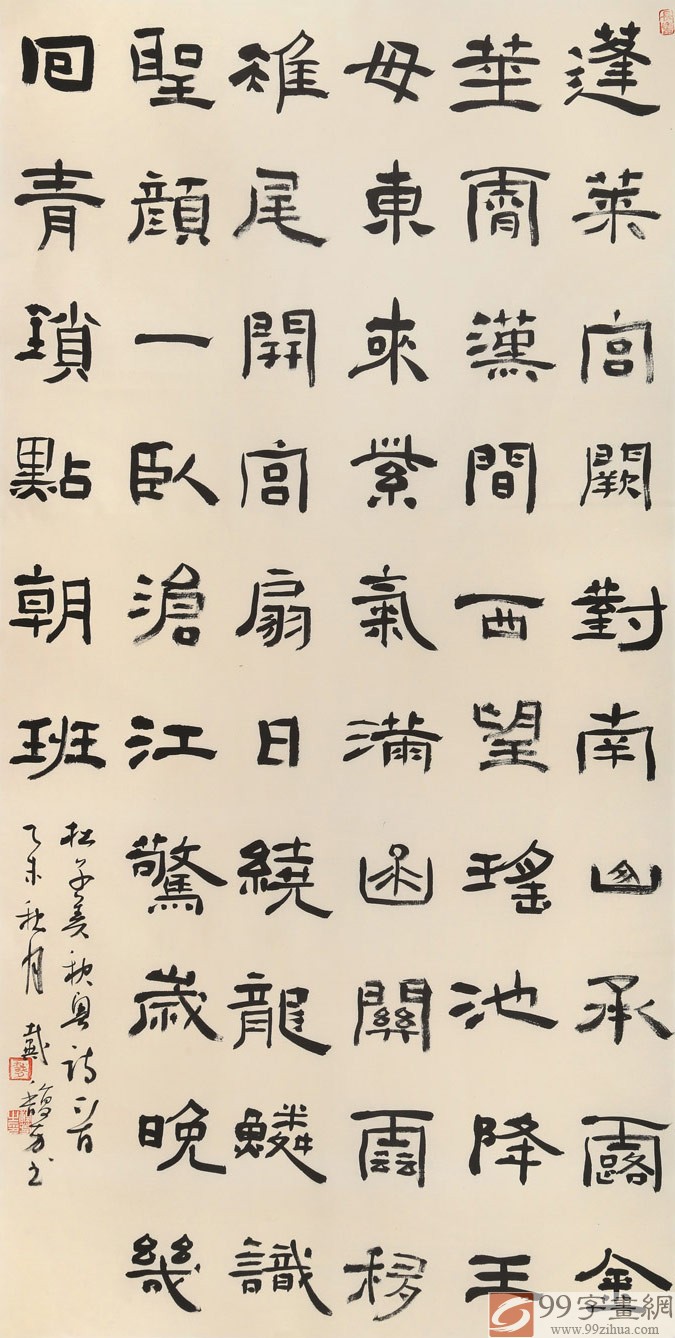 蓬萊宮闕對南山承露金
莖霄漢間西望瑤池降王
母東來紫氣滿函關雲移
雉尾開宮扇日繞龍鱗識
聖顏一臥滄江驚歲晚幾
回青瑣點朝班
杜子美秋興詩一首
乙未秋月 戴
99字畫網
www.99zihua.com